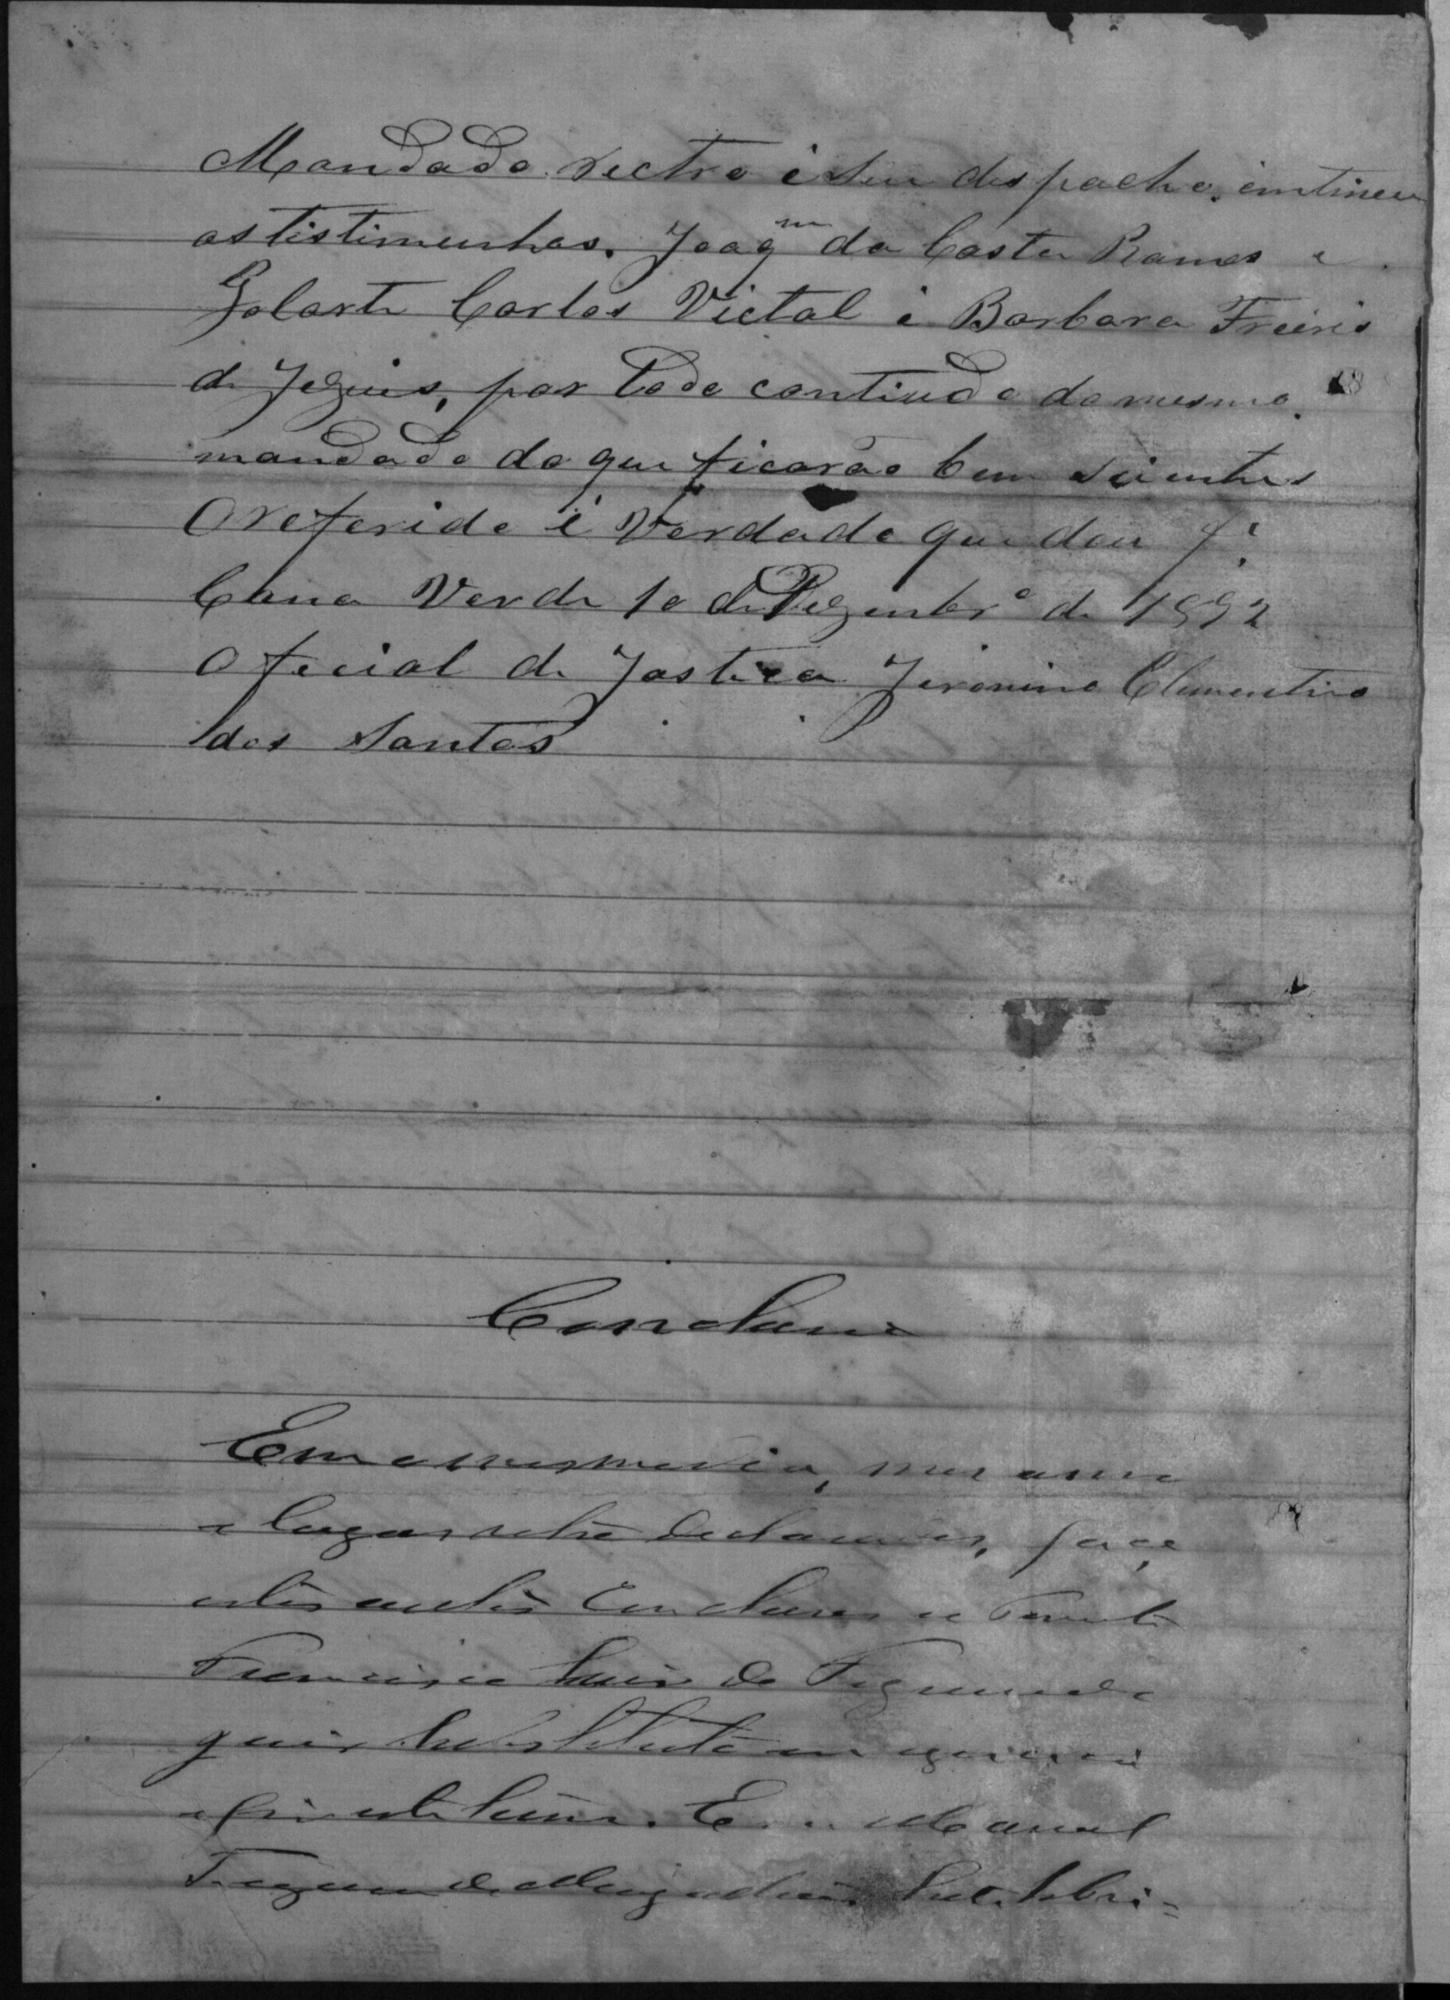 Mandado rectro e seu despacho. intimei
as tistimunhas. Joaq.m da Costa Ramos e
Golarte Carlos Victal i Barbara Freiris
di Jezuis, por todo contiudo do mesmo
mandado do que ficarão bem scientes
O referido é verdade que dou fé.
Cana Verde 10 di Dezembro de 1892
O fecial di Jostica Jironimo Clementino
dos Santos
Conclusão
Em o mesmo dia, mes anno
e lugar retro declarados, faço
estes autos conclusos ao Tenente
Francisco Luis de Figueiredo
juis substituto em
Eu Manoel